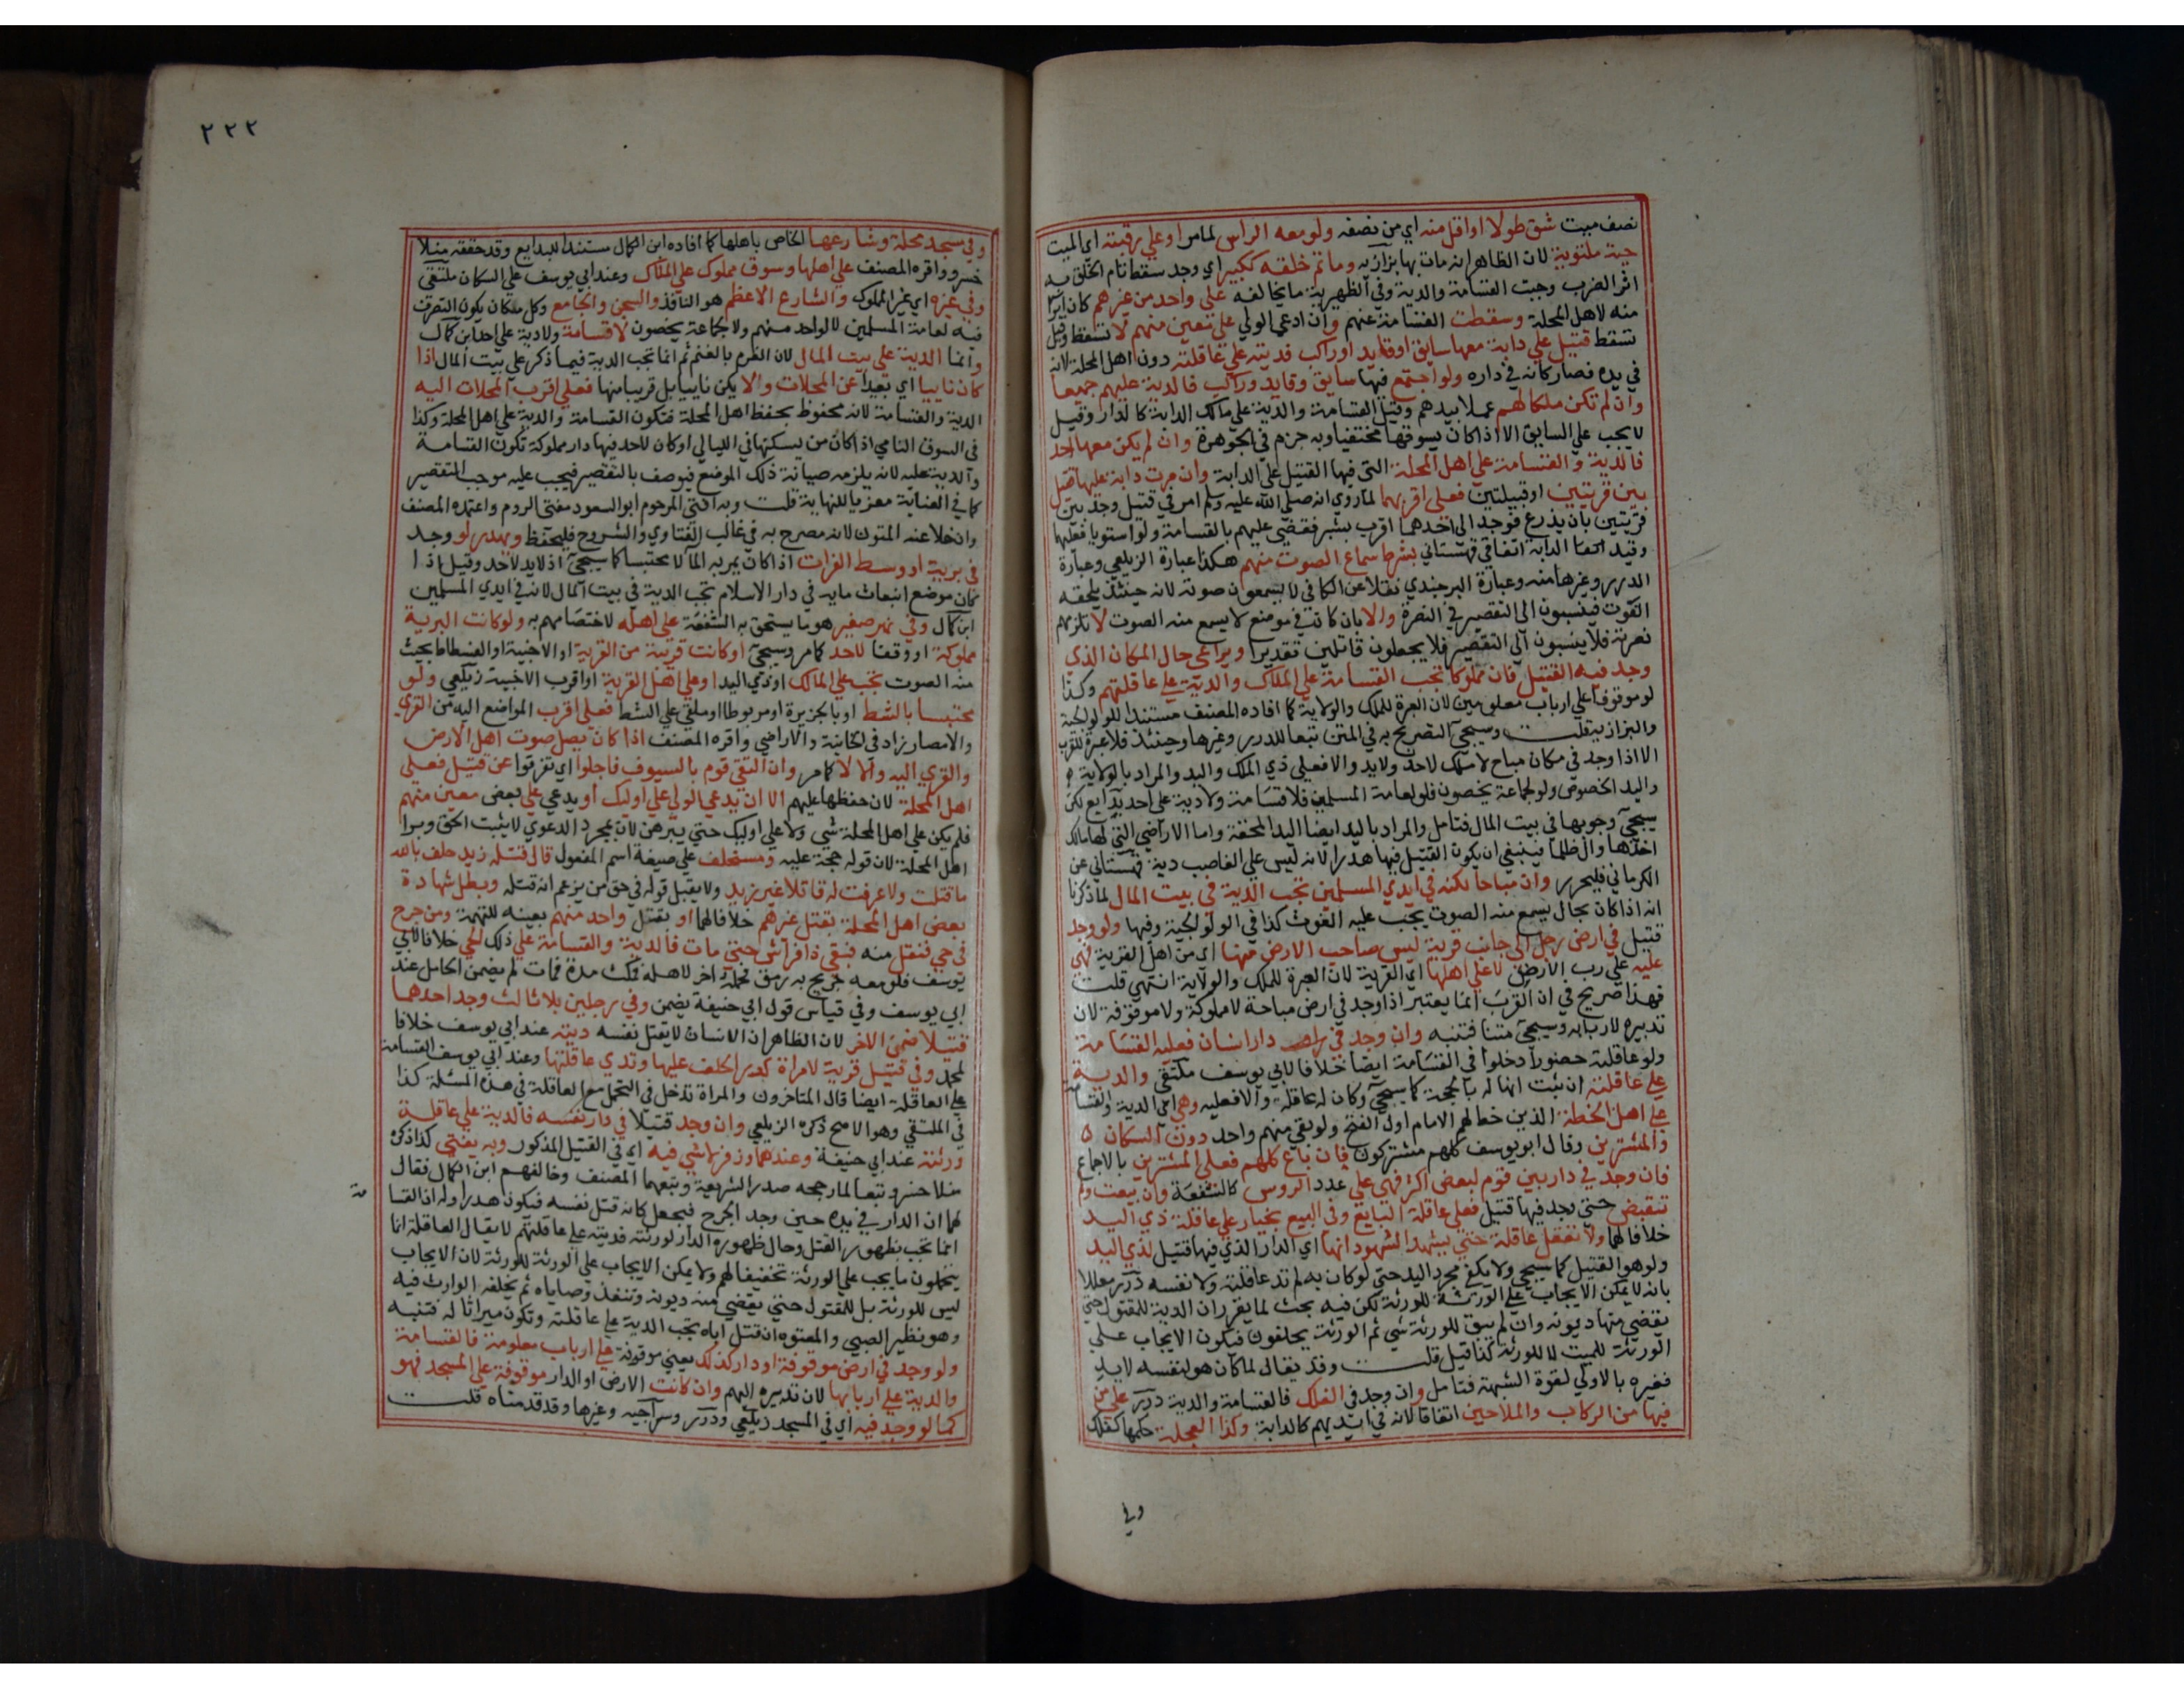 نصف ميت شق طولا او اقل منه اي من نصفه ولو معه الراس لما مر او علي رقبته اي الميت
حية ملتوية لان الظاهر انه مات بها بزازيه وما تم خلقه ككبير اي وجد سقط تام الخلق به
اثر الضرب وجبت القسامة والدية وفي الظهيرية ما يخالفه علي واحد من غيرهم كان ابراء
منه لاهل المحلة وسقطت القسامة عنهم وان ادعي الولي علي معين منهم لا تسقط وقيل
تسقط قتيل علي دابة معها سايق او قايد او راكب فديته علي عاقلته دون اهل المحلة لانه
في يده فصار كانه في داره ولو اجتمع فيها سايق وقايد وراكب فالدية عليهم جميعا
وان لم تكن ملكا لهم عملا بيدهم وقيل القسامة والدية علي مالك الدابة كالدار وقيل
لا يجب علي السايق الا اذا كان يسوقها مختفيا وبه جزم في الجوهرة وان لم يكن معها احد
فالدية والقسامة علي اهل المحلة التي فيها القتيل علي الدابة وان مرت دابة عليها قتيل
بين قريتين او قبيلتين فعلي اقربهما لما روي انه صلي الله عليه وسلم امر في قتيل وجد بين
قريتين بان يذرع فوجد الي احدهما اقرب بشبر فقضي عليهم بالقسامة ولو استويا فعليهما
وقيد الدابة اتفاقي قهستاني بشرط سماع الصوت منهم هكذا عبارة الزيلعي وعبارة
الدرر وغيرها منه وعبارة البرجندي نقلا عن الكافي لا يسمعون صوته لانه حينئذ يلحقه
الغوث فينسبون الي التقصير في النصرة والا بان كان في موضع لا يسمع منه الصوت لا تلزمهم
نصرته فلا ينسبون الي التقصير فلا يجعلون قاتلين تقديرا ويراعي حال المكان الذي
وجد فيه القتيل فان مملوكا تجب القسامة علي الملاك والدية علي عاقلتهم وكذا
لو موقوفا علي ارباب معلومين لان العبرة للملك والولاية كما افاده المصنف مستندا للولوالجية
والبزازية قلت وسيجئ التصريح به في المتن تبعا للدرر وغيرها وحينئذ فلا عبرة للقرب
الا اذا وجد في مكان مباح لا ملك لاحد ولا يد والا فعلي ذي الملك واليد والمراد بالولاية
واليد الخصوص ولو لجماعة يحصون فلو لعامة المسلمين فلا قسامة ولا دية علي احد بدايع لكن
سيجئ وجوبها في بيت المال فتامل والمراد باليد ايضا اليد المحقة واما الاراضي التي لها مالك
اخذها وال ظلما فينبغي ان يكون القتيل فيها هدرا لانه ليس علي الغاصب دية قهستاني عن
الكرماني فليحرر وان مباحا لكنه في ايدي المسلمين تجب الدية في بيت المال لما ذكرنا
انه اذا كان بحال يسمع منه الصوت يجب عليه الغوث كذا في الولوالجية وفيها ولو وجد
قتيل في ارض رجل الي جانب قرية ليس صاحب الارض منها اي من اهل القرية فهي
عليه علي رب الارض لا علي اهلها اي القرية لان العبرة للملك والولاية انتهي قلت
فهذا صريح في ان القرب انما يعتبر اذا وجد في ارض مباحة لا مملوكة ولا موقوفة لان
تدبيره لاربابه وسيجئ متنا فتنبه وان وجد في دار انسان فعليه القسامة
ولو عاقلته حضورا دخلوا في القسامة ايضا خلافا لابي يوسف ملتقي والدية
علي عاقلته ان ثبت انها له بالحجة كما سيجئ وكان له عاقلة والا فعليه وهي اي الدية والقسامة
علي اهل الخطة الذين خط لهم الامام اول الفتح ولو بقي منهم واحد دون السكان
والمشترين وقال ابو يوسف كلهم مشتركون فان باع كلهم فعلي المشترين بالاجماع
فان وجد في دار بين قوم لبعض اكثر فهي علي عدد الروس كالشفعة وان بيعت ولم
تقبض حتي وجد فيها قتيل فعلي عاقلة البايع وفي البيع بخيار علي عاقلة ذي اليد
خلافا لهما ولا تعقل عاقلة حتي يشهد الشهود انها اي الدار الذي فيها قتيل لذي اليد
ولو هو القتيل كما سيجئ ولا يكفي مجرد اليد حتي لو كان به لم تد عاقلته ولا نفسه درر معللا
بانه لا يمكن الايجاب علي الورثة للورثة لكن فيه بحث لما يقرر ان الدية للمقتول حتي
يقضي منها ديونه وان لم يبق للورثة شي ثم الورثة يخلفون فيكون الايجاب علي
الورثة للميت لا للورثة كذا قيل قلت وقد يقال لما كان هو لنفسه لا يد
فغيره بالاولي لقوة الشبهة فتامل وان وجد في الفلك فالقسامة والدية درر علي من
فيها من الركاب والملاحين اتفاقا لانه في ايديهم كالدابة وكذا العجلة حكمها كفلك
وفي
٢٢٢
وفي مسجد محلة وشارعها الخاص باهلها كما افاده ابن الكمال مستندا للبدايع وقد حققه منلا
خسرو واقره المصنف علي اهلها وسوق مملوك علي الملاك وعند ابي يوسف علي السكان ملتقي
وفي غيره اي غير المملوك والشارع الاعظم هو النافذ والسجن والجامع وكل مكان يكون التصرف
فيه لعامة المسلمين لا لواحد منهم ولا لجماعة يحصون لا قسامة ولا دية علي احد ابن كمال
وانما الدية علي بيت المال لان الغرم بالغنم ثم انما تجب الدية فيما ذكر علي بيت المال اذا
كان نائيا اي بعيدا عن المحلات والا يكن نائيا بل قريبا منها فعلي اقرب المحلات اليه
الدية والقسامة لانه محفوظ بحفظ اهل المحلة فتكون القسامة والدية علي اهل المحلة وكذا
في السوق النائي اذا كان من يسكنها في الليالي او كان لاحد فيها دار مملوكة تكون القسامة
والدية عليه لانه يلزمه صيانة ذلك الموضع فيوصف بالتقصير فيجب عليه موجب التقصير
كما في العناية معزيا للنهاية قلت وبه افتي المرحوم ابو السعود مفتي الروم واعتمده المصنف
وان خلا عنه المتون لانه مصرح به في غالب الفتاوي والشروح فليحفظ ويهدر لو وجد
في برية او وسط الفرات اذا كان يمر به الماء لا محتبسا كما سيجئ اذ لا يد لاحد وقيل اذا
كان موضع انبعاث مايه في دار الاسلام تجب الدية في بيت المال لانه في ايدي المسلمين
ابن كمال وفي نهر صغير هو ما يستحق به الشفعة علي اهله لاختصاصهم به ولو كانت البرية
مملوكة او وقفا لاحد كما مر وسيجئ او كانت قريبة من القرية او الاخبية او الفسطاط بحيث
منه الصوت تجب علي المالك او ذي اليد او علي اهل القرية او اقرب الاخبية زيلعي ولو
محتبسا بالشط او بالجزيرة او مربوطا او ملقي علي الشط فعلي اقرب المواضع اليه من القري
والامصار زاد في الخانية والاراضي واقره المصنف اذا كان يصل صوت اهل الارض
والقري اليه والا لا كما مر وان التقي قوم بالسيوف فاجلوا اي تفرقوا عن قتيل فعلي
اهل المحلة لان حفظها عليهم الا ان يدعي الولي علي اوليك او يدعي علي بعض معين منهم
فلم يكن علي اهل المحلة شي ولا علي اوليك حتي يبرهن لان بمجرد الدعوي لا يثبت الحق وبرا
اهل المحلة لان قوله حجة عليه ومستحلف علي صيغة اسم المفعول قال قتله زيد حلف بالله
ما قتلت ولا عرفت له قاتلا غير زيد ولا يقبل قوله في حق من يزعم انه قتله وبطل شهادة
بعض اهل المحلة بقتل غيرهم خلافا لهما او بقتل واحد منهم بعينه للتهمة ومن جرح
في حي فنقل منه فبقي ذا فراش حتي مات فالدية والقسامة علي ذلك الحي خلافا لابي
يوسف فلو معه جريح به رمق فحمله اخر لاهله فمكث مدة فمات لم يضمن الحامل عند
ابي يوسف وفي قياس قول ابي حنيفة يضمن وفي رجلين بلا ثالث وجد احدهما
قتيلا ضمن الاخر لان الظاهر ان الانسان لا يقتل نفسه ديته عند ابي يوسف خلافا
لمحمد وفي قتيل قرية لامراة كرر الحلف عليها وتدي عاقلتها وعند ابي يوسف القسامة
علي العاقلة ايضا قال المتاخرون والمراة تدخل في التحمل مع العاقلة في هذه المسئلة كذا
في الملتقي وهو الاصح ذكره الزيلعي وان وجد قتيلا في دار نفسه فالدية علي عاقلة
ورثته عند ابي حنيفة وعندهما وزفر لا شي فيه اي في القتيل المذكور وبه يفتي كذا ذكره
منلا خسرو تبعا لما رجحه صدر الشريعة وتبعهما المصنف وخالفهم ابن الكمال فقال
لهما ان الدار في يده حين وجد الجرح فيجعل كانه قتل نفسه فيكون هدرا وله ان القسامة
انما تجب بظهور القتل وحال ظهوره الدار لورثته فديته علي عاقلتهم لا يقال العاقلة انما
يتحملون ما يجب علي الورثة تخفيفا لهم ولا يمكن الايجاب علي الورثة للورثة لان الايجاب
ليس للورثة بل للمقتول حتي يقضي منه ديونه وتنفذ وصاياه ثم يخلفه الوارث فيه
وهو نظير الصبي والمعتوه ان قتل اباه تجب الدية علي عاقلته وتكون ميراثا له فتنبه
ولو وجد في ارض موقوفة او دار كذلك يعني موقوفة علي ارباب معلومة فالقسامة
والدية علي اربابها لان تدبيره اليهم وان كانت الارض او الدار موقوفة علي المسجد فهو
كما لو وجد فيه اي في المسجد زيلعي ودرر وسراجيه وغيرها وقد قدمناه قلت